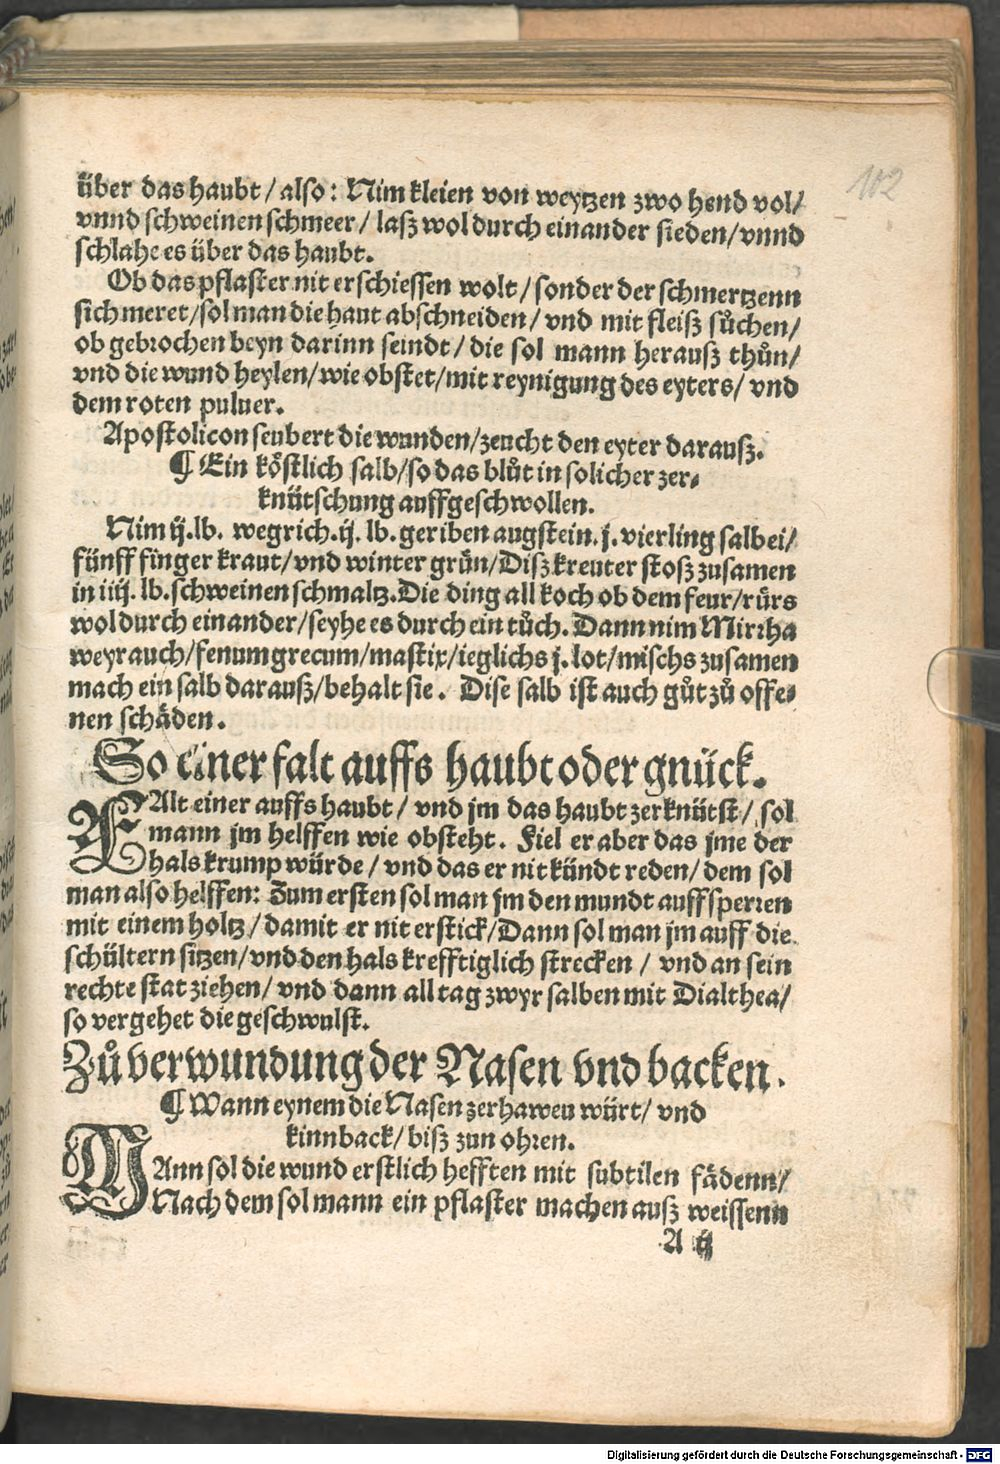 102
über das haubt / also: Nim kleien von weytzen zwo hend vol/
vnnd schweinen schmeer / lasz wol durch einander sieden/vnnd
schlahe es über das haubt.
Ob das pflaster nit erschiessen wolt / sonder der schmertzenn
sich meret/sol man die haut abschneiden/ vnd mit fleisz sůchen/
ob gebrochen beyn darinn seindt / die sol mann herausz thůn/
vnd die wund heylen/wie obstet/mit reynigung des eyters/ vnd
dem roten puluer.
Apostolicon seubert die wunden/zeucht den eyter darausz.
¶ Ein köstlich salb/so das blůt in solicher zer-
knütschung auffgeschwollen.
Nim ij.lb. wegrich.ij. lb. geriben augstein.j. vierling salbei/
fünff finger kraut/vnd winter grün/Disz kreuter stosz zusamen
in iiij. lb. schweinen schmaltz.Die ding all koch ob dem feur/rürs
wol durch einander/seyhe es durch ein tůch. Dann nim Mirrha
weyrauch/fenumgrecum/mastix/ieglichs j. lot/mischs zusamen
mach ein salb darausz/behalt sie. Dise salb ist auch gůt zů offe-
nen schäden.
So einer falt auffs haubt oder gnück.
FAlt einer auffs haubt / vnd jm das haubt zerknütst/ sol
mann jm helffen wie obsteht. Fiel er aber das jme der
hals krump würde / vnd das er nit kündt reden/ dem sol
man also helffen: Zum ersten sol man jm den mundt auffsperren
mit einem holtz / damit er nit erstick/Dann sol man jm auff die
schültern sitzen/vnd den hals krefftiglich strecken / vnd an sein
rechte stat ziehen/ vnd dann all tag zwyr salben mit Dialthea/
so vergehet die geschwulst.
Zů verwundung der Nasen vnd backen.
¶ Wann eynem die Nasen zerhawen würt/ vnd
kinnback/ bisz zun ohren.
MAnn sol die wund erstlich hefften mit subtilen fädenn/
Nach dem sol mann ein pflaster machen ausz weissenn
A ij
Digitalisierung gefördert durch die Deutsche Forschungsgemeinschaft - DFG